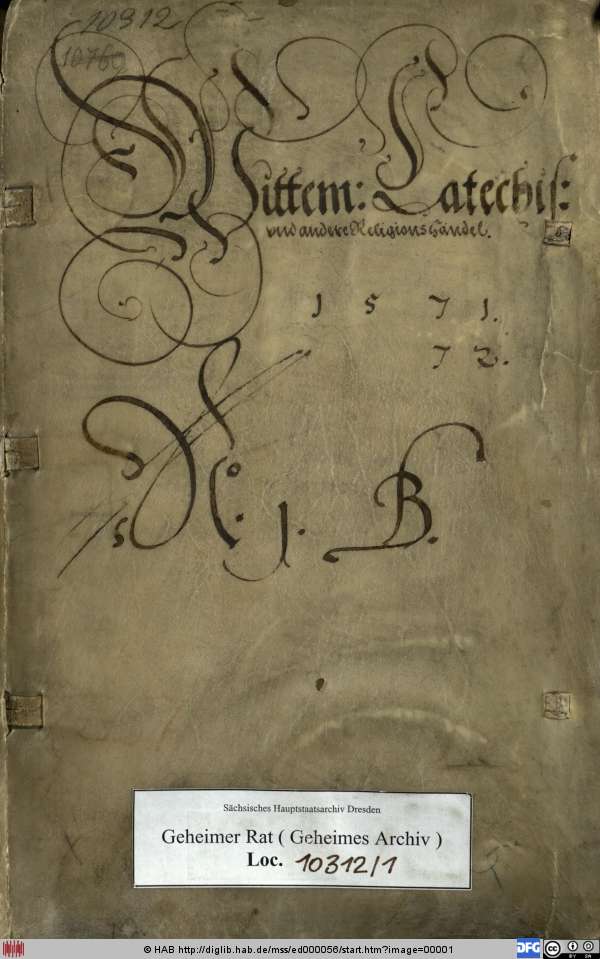 10312
10760
Wittem: Catechis:
vnd andere Religions händel.
1571.
72.
No: 1. B.
Sächsisches Hauptstaatsarchiv Dresden
Geheimer Rat ( Geheimes Archiv )
Loc. 10312/1
© HAB http://diglib.hab.de/mss/ed000056/start.htm?image=00001
DFG
BY SA